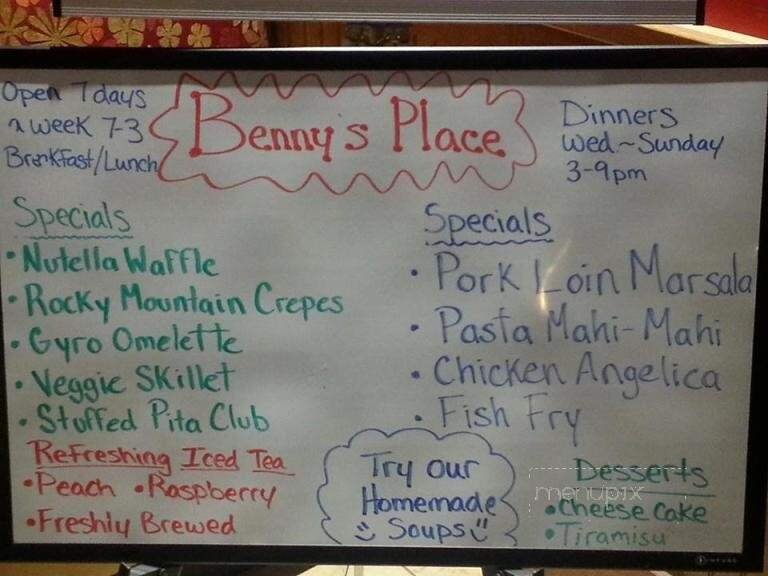 Open 7 days
a week 7-3
Breakfast/Lunch
Benny's Place
Dinners
Wed.~Sunday
3-9pm
Specials
• Nutella Waffle
• Rocky Mountain Crepes
• Gyro Omelette
• Veggie Skillet
• Stuffed Pita Club
Refreshing Iced Tea
• Peach • Raspberry
• Freshly Brewed
Specials
• Pork Loin Marsala
• Pasta Mahi-Mahi
• Chicken Angelica
• Fish Fry
Try our
Homemade
Soups
Desserts
• Cheese Cake
• Tiramisu
menupix